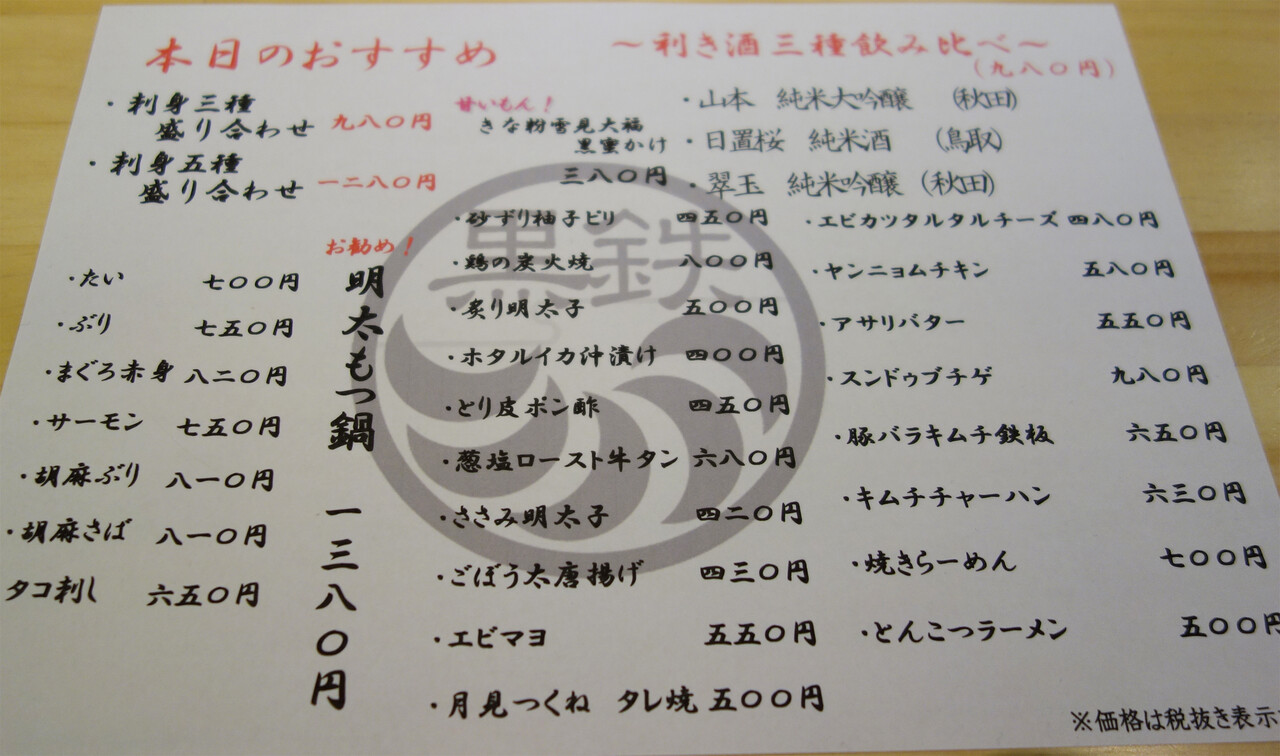 本日のおすすめ
・刺身三種
盛り合わせ 九八〇円
・刺身五種
盛り合わせ 一二八〇円
・たい 七〇〇円
・ぶり 七五〇円
・まぐろ赤身 八二〇円
・サーモン 七五〇円
・胡麻ぶり 八一〇円
・胡麻さば 八一〇円
タコ刺し 六五〇円
お勧め！
明太もつ鍋 一三八〇円
甘いもん！
きな粉雪見大福
黒蜜かけ
三八〇円
・砂ずり柚子ピリ 四五〇円
・鶏の炭火焼 八〇〇円
・炙り明太子 五〇〇円
・ホタルイカ沖漬け 四〇〇円
・とり皮ポン酢 四五〇円
・葱塩ロースト牛タン 六八〇円
・ささみ明太子 四二〇円
・ごぼう太唐揚げ 四三〇円
・エビマヨ 五五〇円
・月見つくね タレ焼 五〇〇円
～利き酒三種飲み比べ～
（九八〇円）
・山本 純米大吟醸 （秋田）
・日置桜 純米酒 （鳥取）
・翠玉 純米吟醸 （秋田）
・エビカツタルタルチーズ 四八〇円
・ヤンニョムチキン 五八〇円
・アサリバター 五五〇円
・スンドゥブチゲ 九八〇円
・豚バラキムチ鉄板 六五〇円
・キムチチャーハン 六三〇円
・焼きらーめん 七〇〇円
・とんこつラーメン 五〇〇円
※価格は税抜き表示
黒鉄